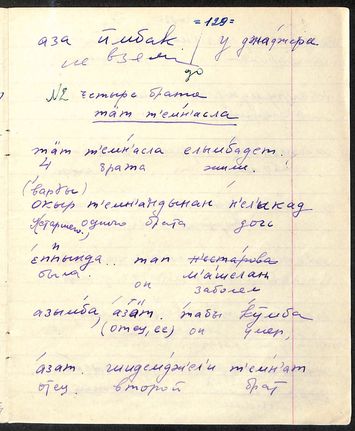 =128=
аза ймбак / у джаджора
не взял до
№2 четыре брата
тӓт т'емн'асла
тӓт т'емн'асла елымбадет.
4 брата жили.
(варғы)
окыр т'емн'андынан н'е́лʼыкад
(старшего) одного брата дочь
е́ппында . . тап н'естарова
была. он заболел
азымба, а́зӓт. табы ку́мба
(отец, ее) он умер,
а́зат. шидемджел'и т'емн'ат
отец. второй брат